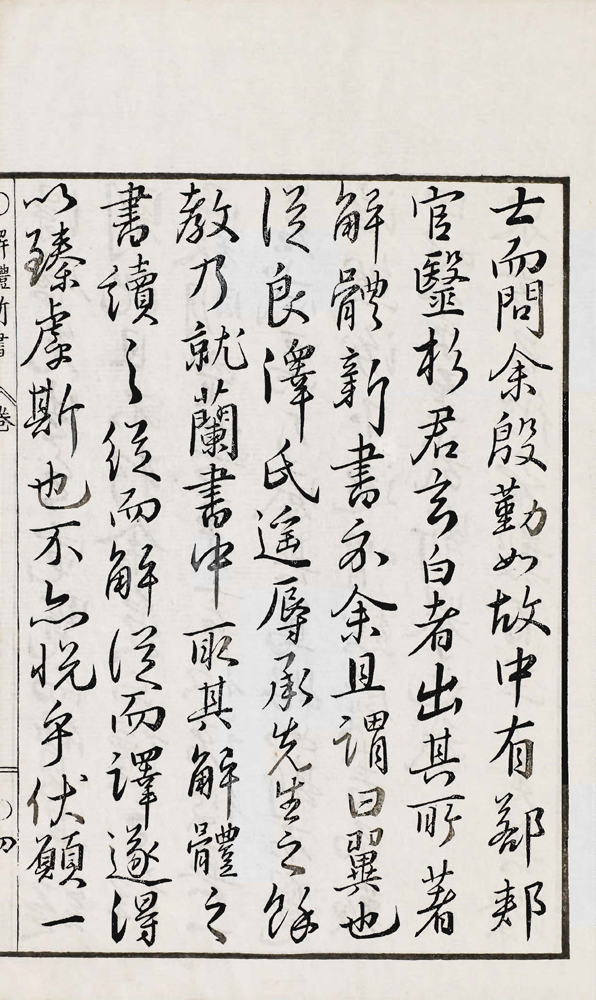 士而問余殷勤如故中有鄀郟
官醫杉君玄白者出其所著
解體新書示余且謂曰翼也
從良澤氏遥辱承先生之餘
教乃就蘭書中取其解體之
書讀之從而解從而譯遂得
以臻虖斯也不亦悦乎伏願一
〇解體新書 卷 〇四